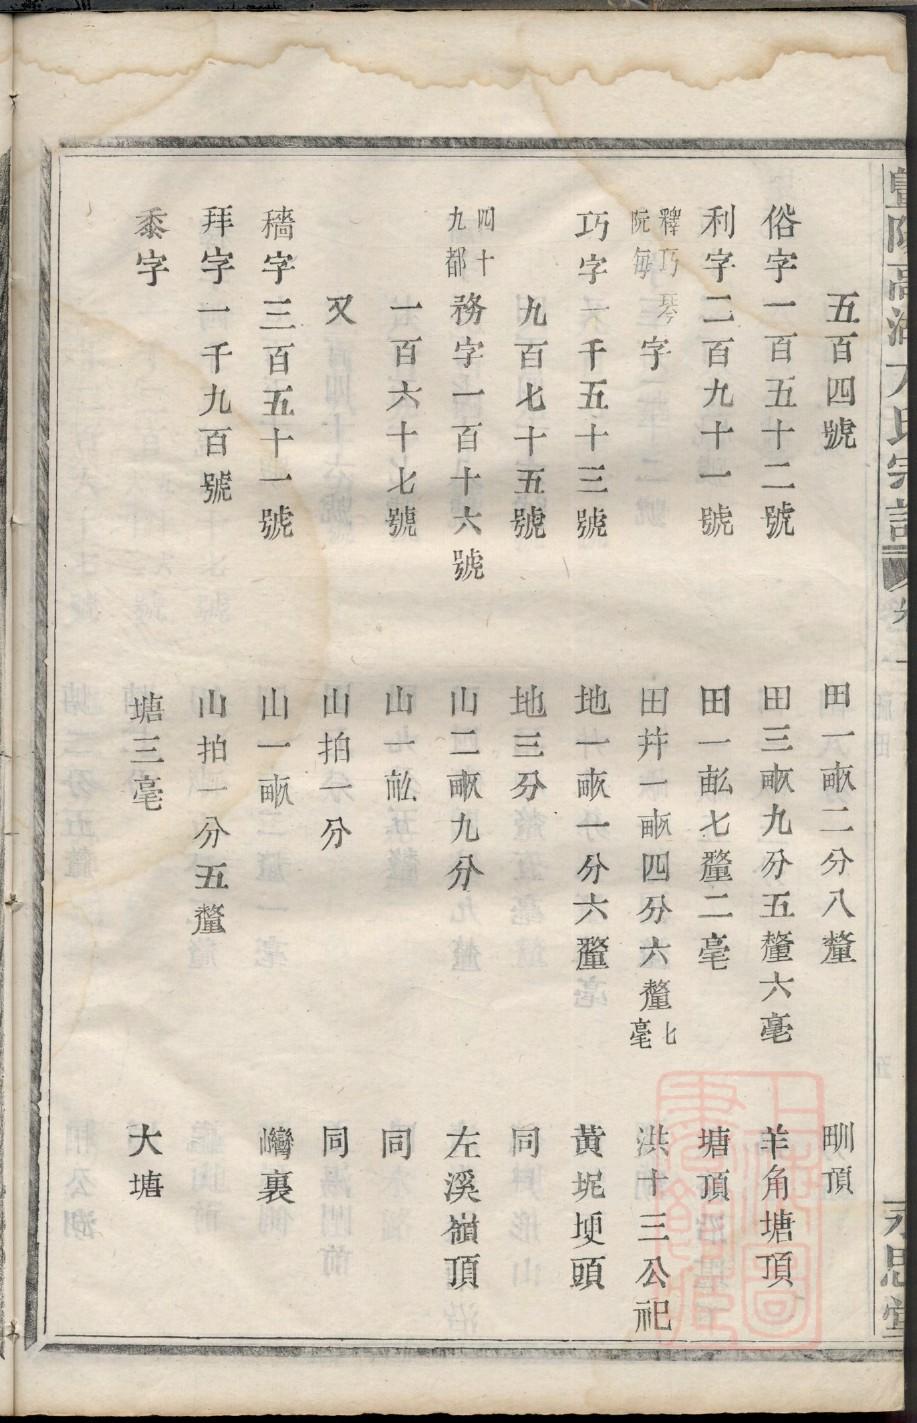 五百四號　田一畝二分八釐　甽頂
俗字一百五十二號　田三畝九分五釐六毫　羊角塘頂
利字二百九十一號　田一畝七釐二毫　塘頂
釋巧琴阮每字　田幷一畝四分六釐七毫　洪十三公祀
巧字一千五十三號　地一畝一分六釐　黃坭埂頭
九百七十五號　地三分　同
四十九都務字一百十六號　山二畝九分　左溪嶺頂
一百六十七號　山一畝　同
又　山拍一分　同
穡字三百五十一號　山一畝　裏
拜字一千九百號　山拍一分五釐
黍字　塘三毫　大塘
高湖方氏宗譜　卷　永思堂